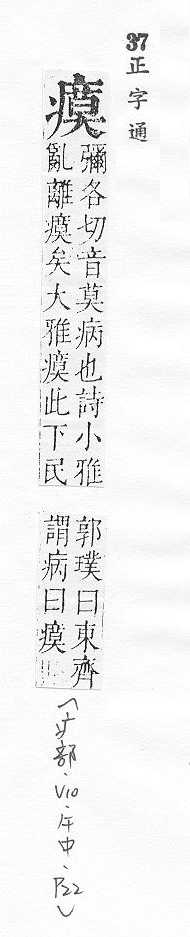 37正字通
瘼
彌各切音莫病也詩小雅
亂離瘼矣大雅瘼此下民
郭璞曰東齊
謂病曰瘼
(疒部·V10·午中·P22)